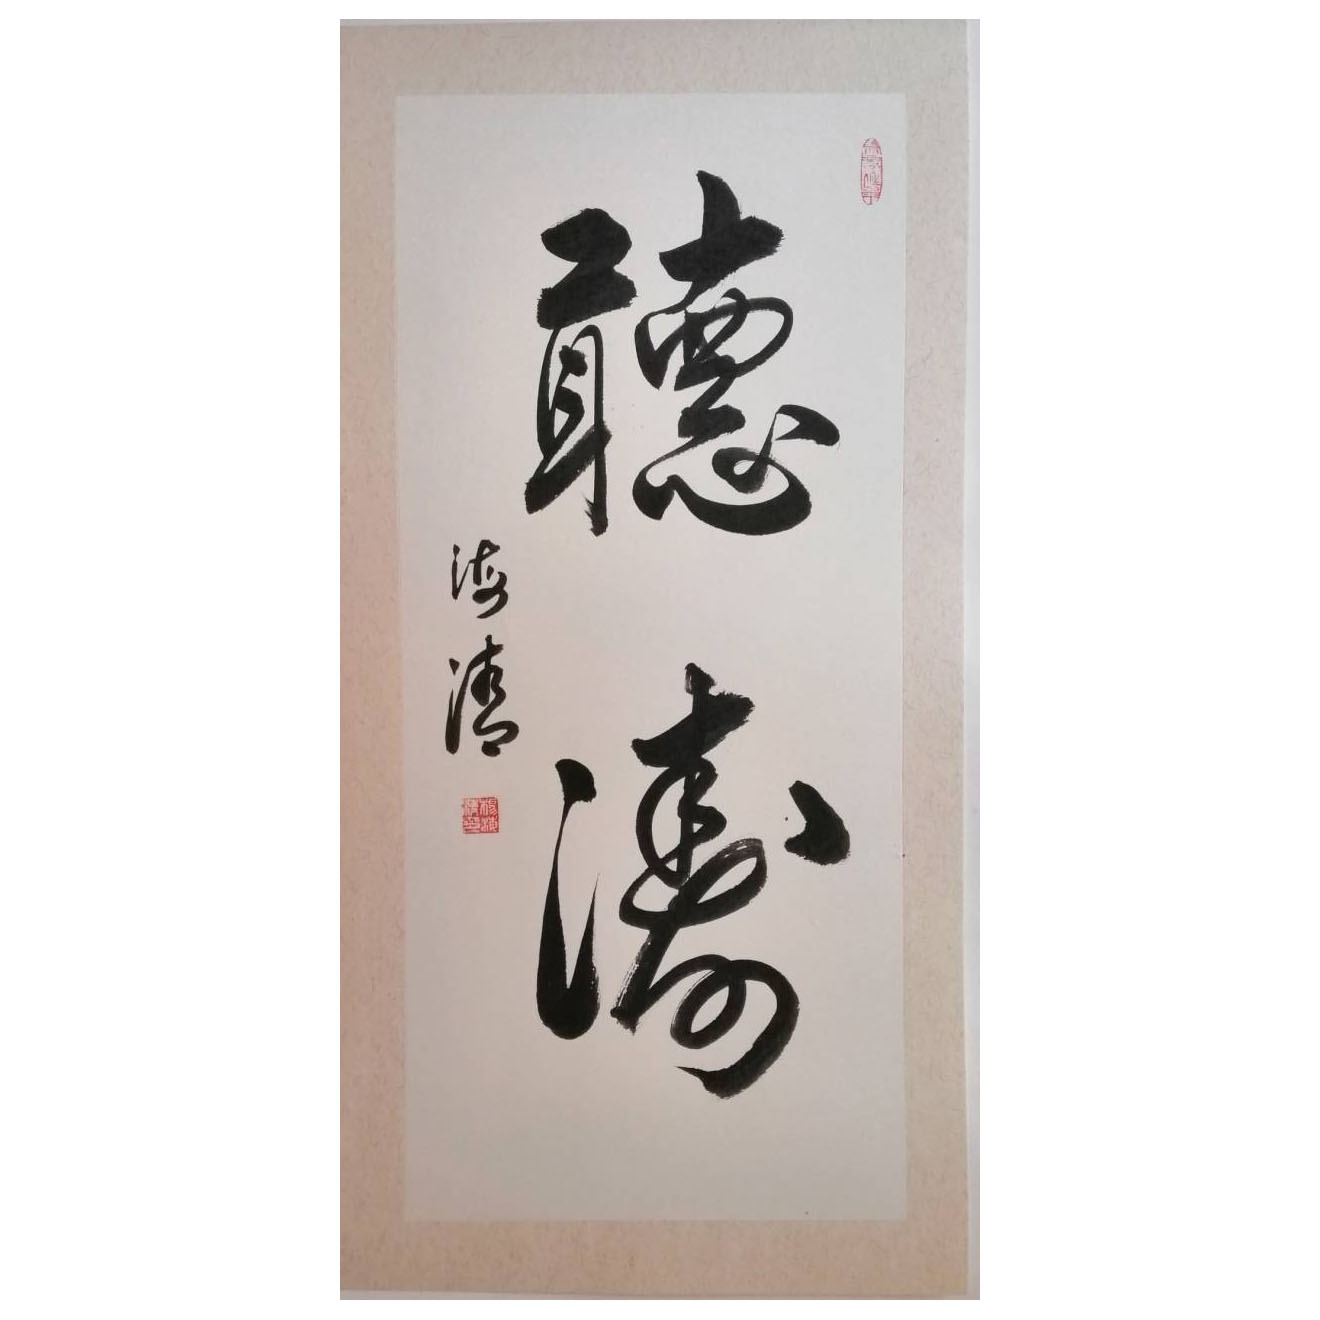 聽濤
海清